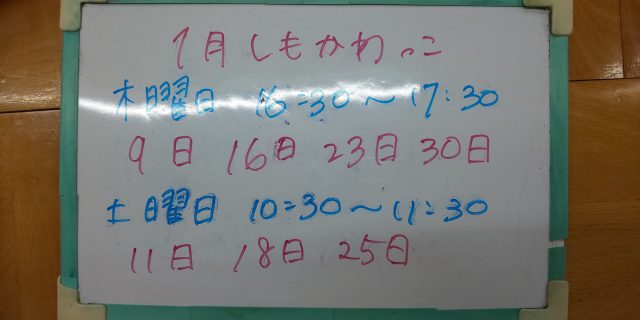 1月しもかわっこ
木曜日 16:30〜17:30
9日 16日 23日 30日
土曜日 10:30〜11:30
11日 18日 25日